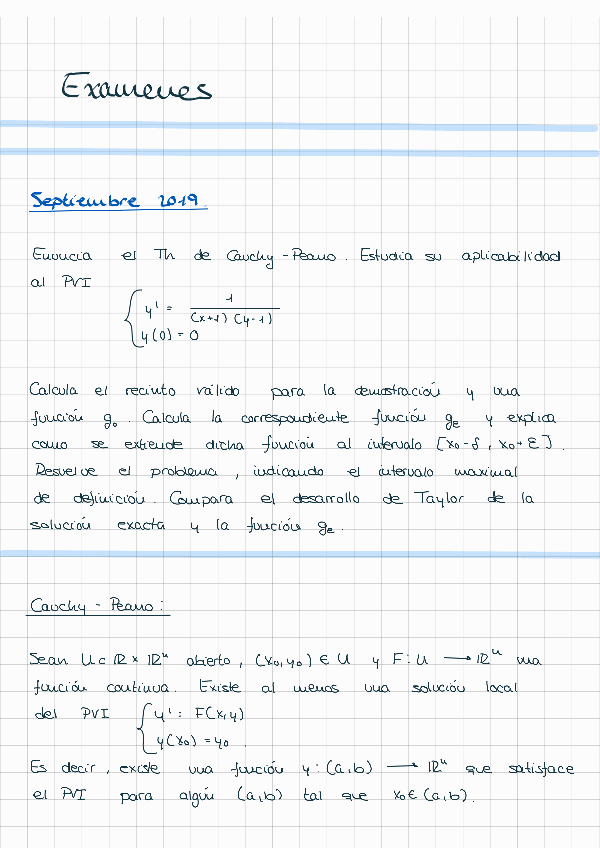 Examenes
Septiembre 2019
Enuncia el Th de Cauchy-Peano. Estudia su aplicabilidad
al PVI
y' = 1 / (x+1)(y-1)
y(0) = 0
Calcula el recinto válido para la demostración y una
función g₀. Calcula la correspondiente función gε y explica
como se extiende dicha función al intervalo [x₀-δ, x₀+ε].
Resuelve el problema, indicando el intervalo maximal
de definición. Compara el desarrollo de Taylor de la
solución exacta y la función gε.
Cauchy - Peano:
Sean U ⊂ ℝ × ℝⁿ abierto, (x₀,y₀) ∈ U y F: U → ℝⁿ una
función continua. Existe al menos una solución local
del PVI
y' : F(x,y)
y(x₀) = y₀.
Es decir, existe una función y: (a,b) → ℝⁿ que satisface
el PVI para algún (a,b) tal que x₀ ∈ (a,b).